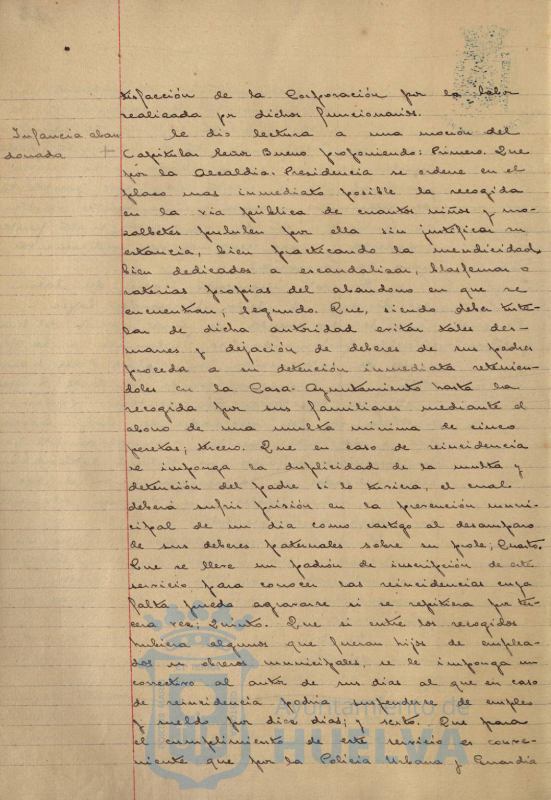 tisfacción de la Corporación por la labor
realizada pr dichos funcionarios.
Infancia aban
donada
Se dió lectura a una moción del
Capitular Señor Bueno proponiendo: Primero. Que
por la Alcaldia-Presidencia se ordene en el
plazo mas inmediato posible la recogida
en la via pública de cuantos niños y mo-
zalbetes pululen por ella sin justificar su
estancia, bien practicando la mendicidad,
bien dedicados a escandalizar, blasfemar o
raterias propias del abandono en que se
encuentran; Segundo. Que, siendo deber tute-
lar de dicha autoridad evitar tales des-
manes y dejación de deberes de sus padres
proceda a su detención inmediata retenien-
doles en la Casa-Ayuntamiento hasta la
recogida por sus familiares mediante el
abono de una multa minima de cinco
pesetas; tercero. Que en caso de reincidencia
se imponga la duplicidad de la multa y
detención del padre si lo tuviera, el cual
deberá sufrir prisión en la prevención muni-
cipal de un dia como castigo al desamparo
de sus deberes paternales sobre su prole; Cuarto.
Que se lleve un padrón de inscripción de este
servicio para conocer las reincidencias cuya
falta pueda agravarse si se repitiera por ter-
cera vez; Quinto. Que si entre los recogidos
hubiera algunos que fueran hijos de emplea-
dos u obreros municipales, se le imponga un
correctivo al autor de sus dias al que en caso
de reincidencia podria suspenderse de empleo
y sueldo por diez dias; y sexto. Que para
el cumplimiento de este servicio es conve-
niente que por la Policia Urbana y Guardia
Ayuntamiento de
HUELVA